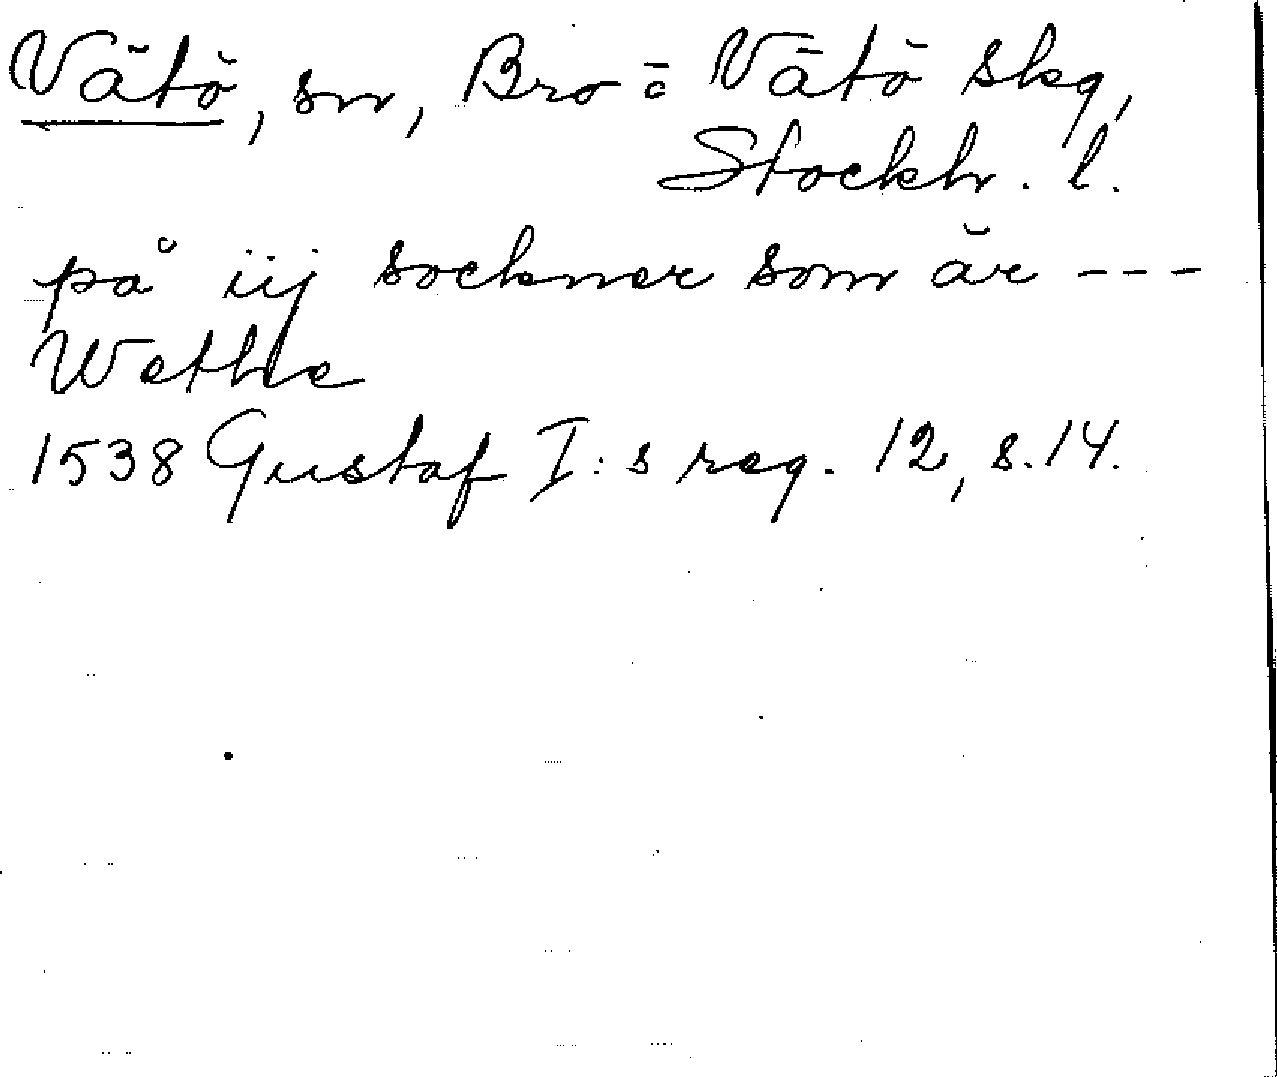 Vätö, sn, Bro o Vätö skg,
Stockh. l.
på iij socknar som är ---
Wethe
1538 Gustaf I:s reg. 12, s. 14.